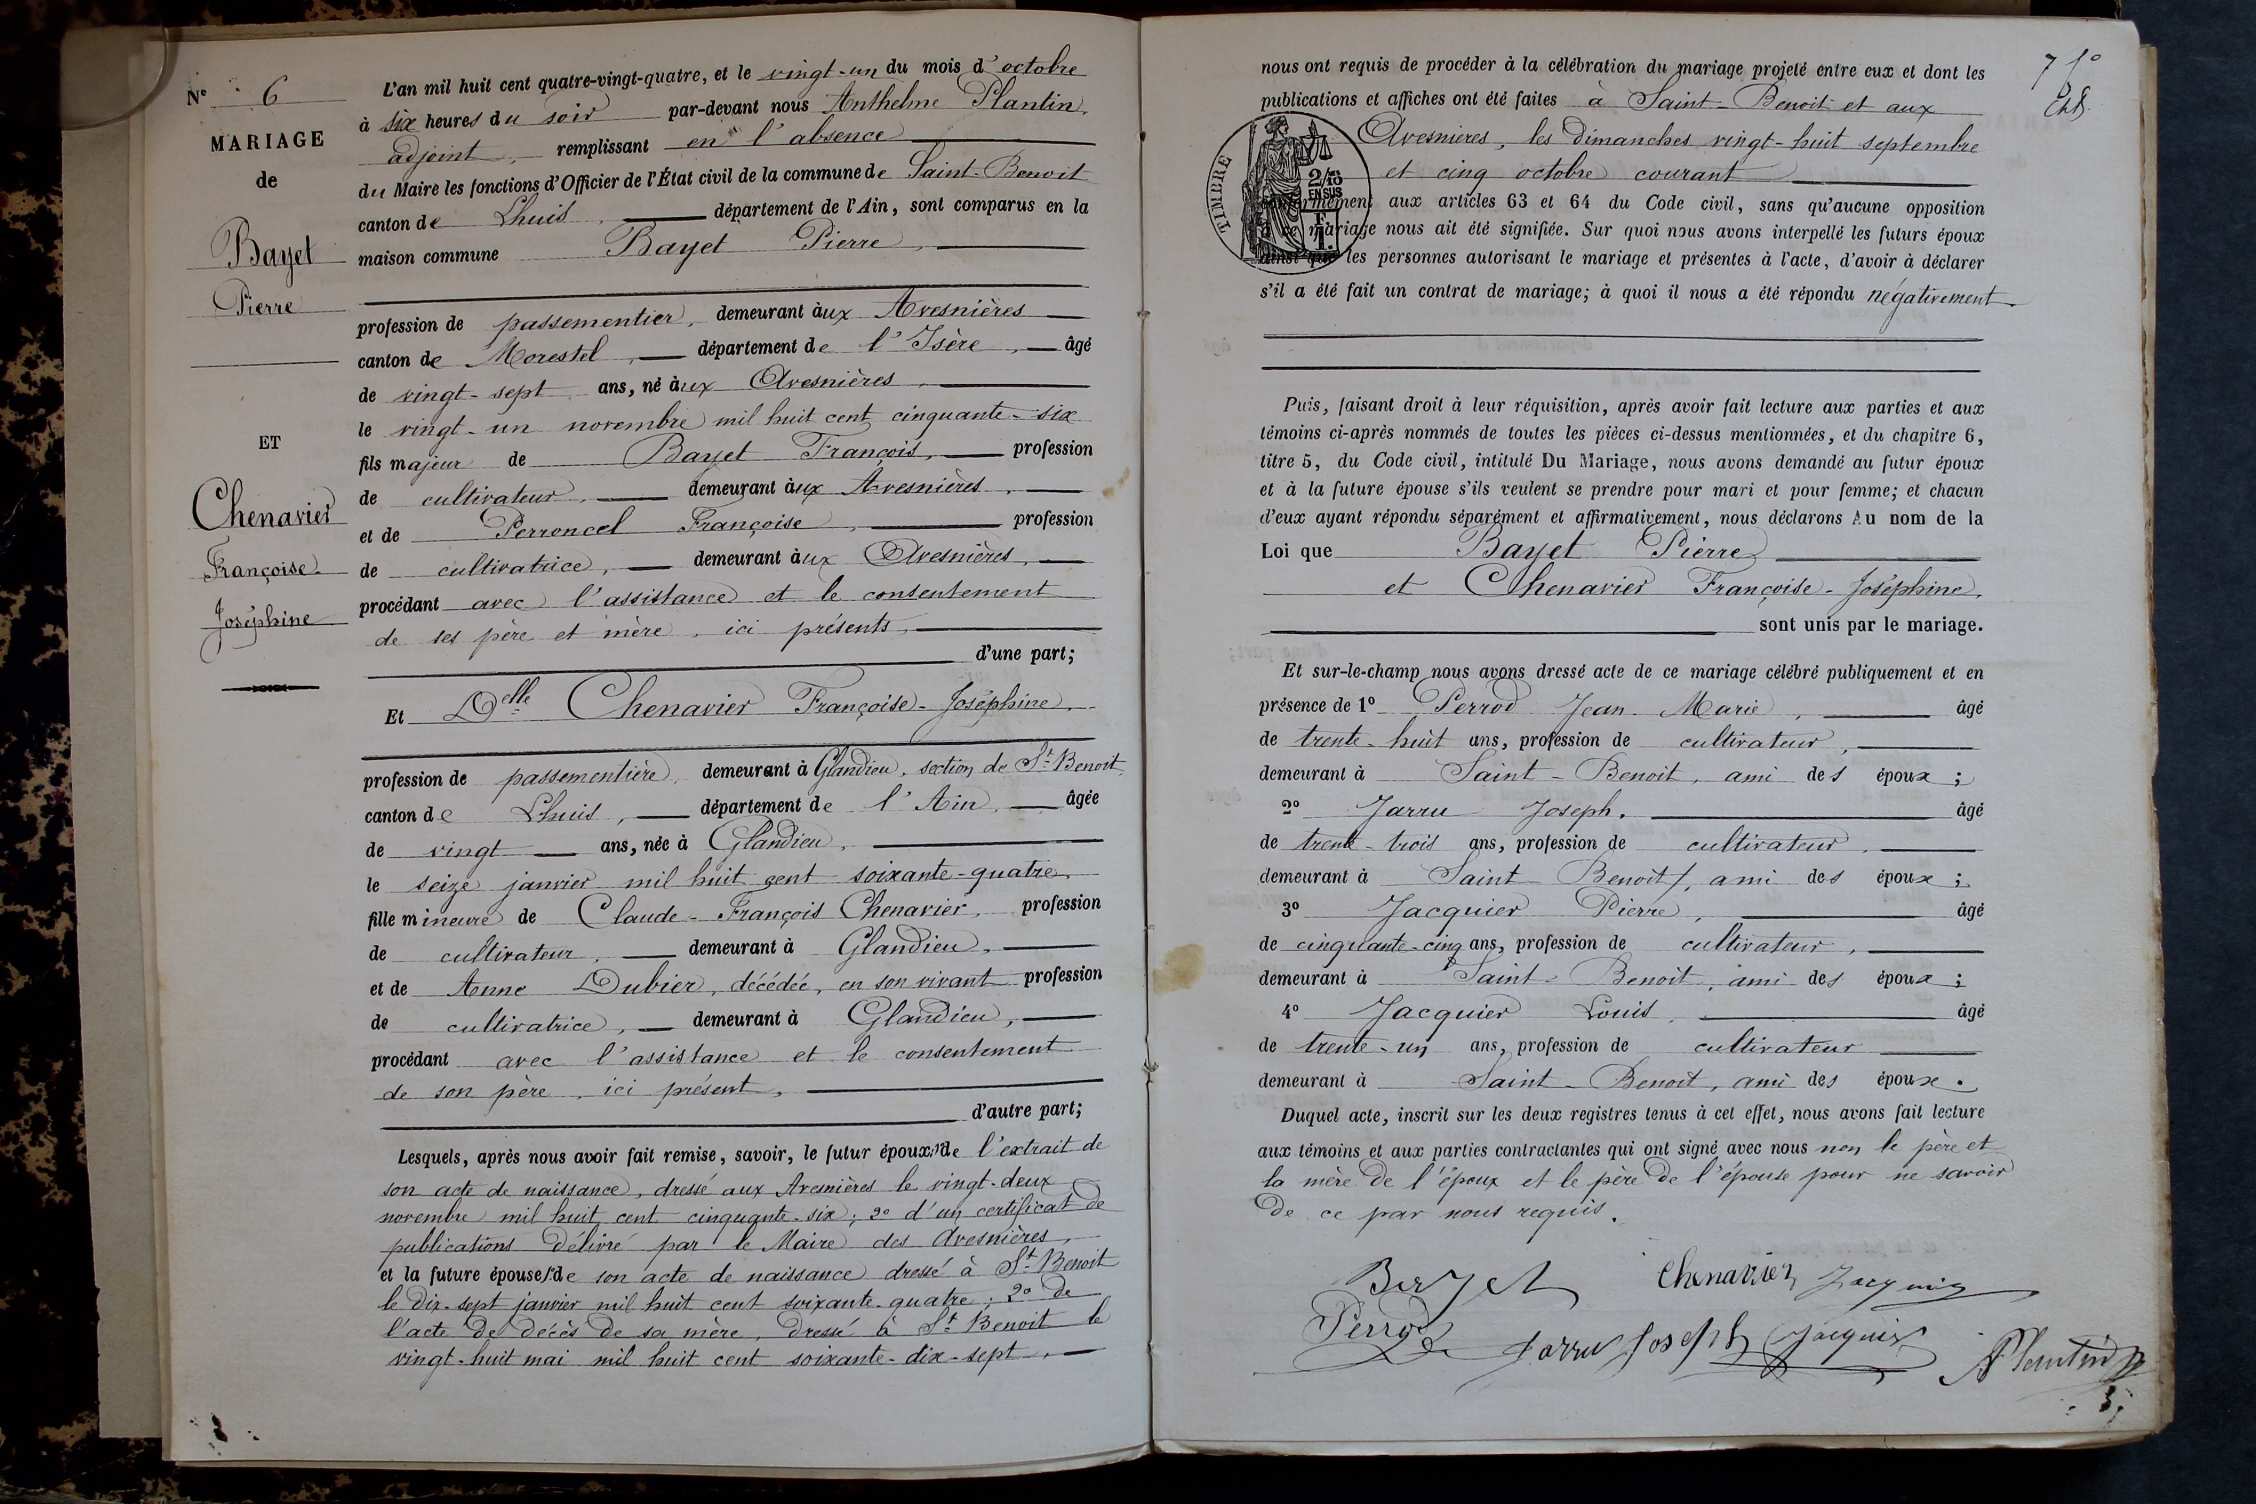 N° 6
MARIAGE
de
Bayet
Pierre
ET
Chenavier
Françoise
Joséphine
L'an mil huit cent quatre-vingt-quatre, et le vingt-un du mois d'octobre
à six heures du soir par-devant nous Anthelme Plantin,
adjoint, remplissant en l'absence
du Maire les fonctions d'Officier de l'État civil de la commune de Saint-Benoit
canton de Lhuis, département de l'Ain, sont comparus en la
maison commune Bayet Pierre,
profession de passementier, demeurant aux Avesnières
canton de Morestel, département de l'Isère, âgé
de vingt-sept ans, né aux Avesnières,
le vingt-un novembre mil huit cent cinquante-six
fils majeur de Bayet François, profession
de cultivateur, demeurant aux Avesnières,
et de Perroncel Françoise, profession
de cultivatrice, demeurant aux Avesnières,
procédant avec l'assistance et le consentement
de ses père et mère, ici présents,
d'une part;
Et Delle Chenavier Françoise-Joséphine,
profession de passementière, demeurant à Glandieu, section de St Benoit,
canton de Lhuis, département de l'Ain, âgée
de vingt ans, née à Glandieu,
le seize janvier mil huit cent soixante-quatre,
fille mineure de Claude-François Chenavier, profession
de cultivateur, demeurant à Glandieu,
et de Anne Dubier, décédée, en son vivant profession
de cultivatrice, demeurant à Glandieu,
procédant avec l'assistance et le consentement
de son père, ici présent,
d'autre part;
Lesquels, après nous avoir fait remise, savoir, le futur époux, 1° de l'extrait de
son acte de naissance, dressé aux Avesnières le vingt-deux
novembre mil huit cent cinquante-six; 2° d'un certificat de
publications délivré par le Maire des Avesnières,
et la future épouse, 1° de son acte de naissance dressé à St Benoit
le dix-sept janvier mil huit cent soixante-quatre; 2° de
l'acte de décès de sa mère, dressé à St Benoit le
vingt-huit mai mil huit cent soixante-dix-sept,
7 f°
nous ont requis de procéder à la célébration du mariage projeté entre eux et dont les
publications et affiches ont été faites à Saint-Benoit et aux
Avesnieres, les dimanches vingt-huit septembre
et cinq octobre courant
TIMBRE
2/10
EN SUS
F.
1.
conformément aux articles 63 et 64 du Code civil, sans qu'aucune opposition
à ce mariage nous ait été signifiée. Sur quoi nous avons interpellé les futurs époux
ainsi que les personnes autorisant le mariage et présentes à l'acte, d'avoir à déclarer
s'il a été fait un contrat de mariage; à quoi il nous a été répondu négativement.
Puis, faisant droit à leur réquisition, après avoir fait lecture aux parties et aux
témoins ci-après nommés de toutes les pièces ci-dessus mentionnées, et du chapitre 6,
titre 5, du Code civil, intitulé Du Mariage, nous avons demandé au futur époux
et à la future épouse s'ils veulent se prendre pour mari et pour femme; et chacun
d'eux ayant répondu séparément et affirmativement, nous déclarons Au nom de la
Loi que Bayet Pierre
et Chenavier Françoise-Joséphine,
sont unis par le mariage.
Et sur-le-champ nous avons dressé acte de ce mariage célébré publiquement et en
présence de 1° Perrod Jean-Marie, âgé
de trente-huit ans, profession de cultivateur,
demeurant à Saint-Benoit, ami des époux;
2° Jarru Joseph, âgé
de trente-trois ans, profession de cultivateur,
demeurant à Saint-Benoit, ami des époux;
3° Jacquier Pierre, âgé
de cinquante-cinq ans, profession de cultivateur,
demeurant à Saint-Benoit, ami des époux;
4° Jacquier Louis, âgé
de trente-un ans, profession de cultivateur
demeurant à Saint-Benoit, ami des époux.
Duquel acte, inscrit sur les deux registres tenus à cet effet, nous avons fait lecture
aux témoins et aux parties contractantes qui ont signé avec nous non le père et
la mère de l'époux et le père de l'épouse pour ne savoir
de ce par nous requis.
Bayet Chenavier Jacquier
Perrod Jarru Joseph Jacquier
A Plantin